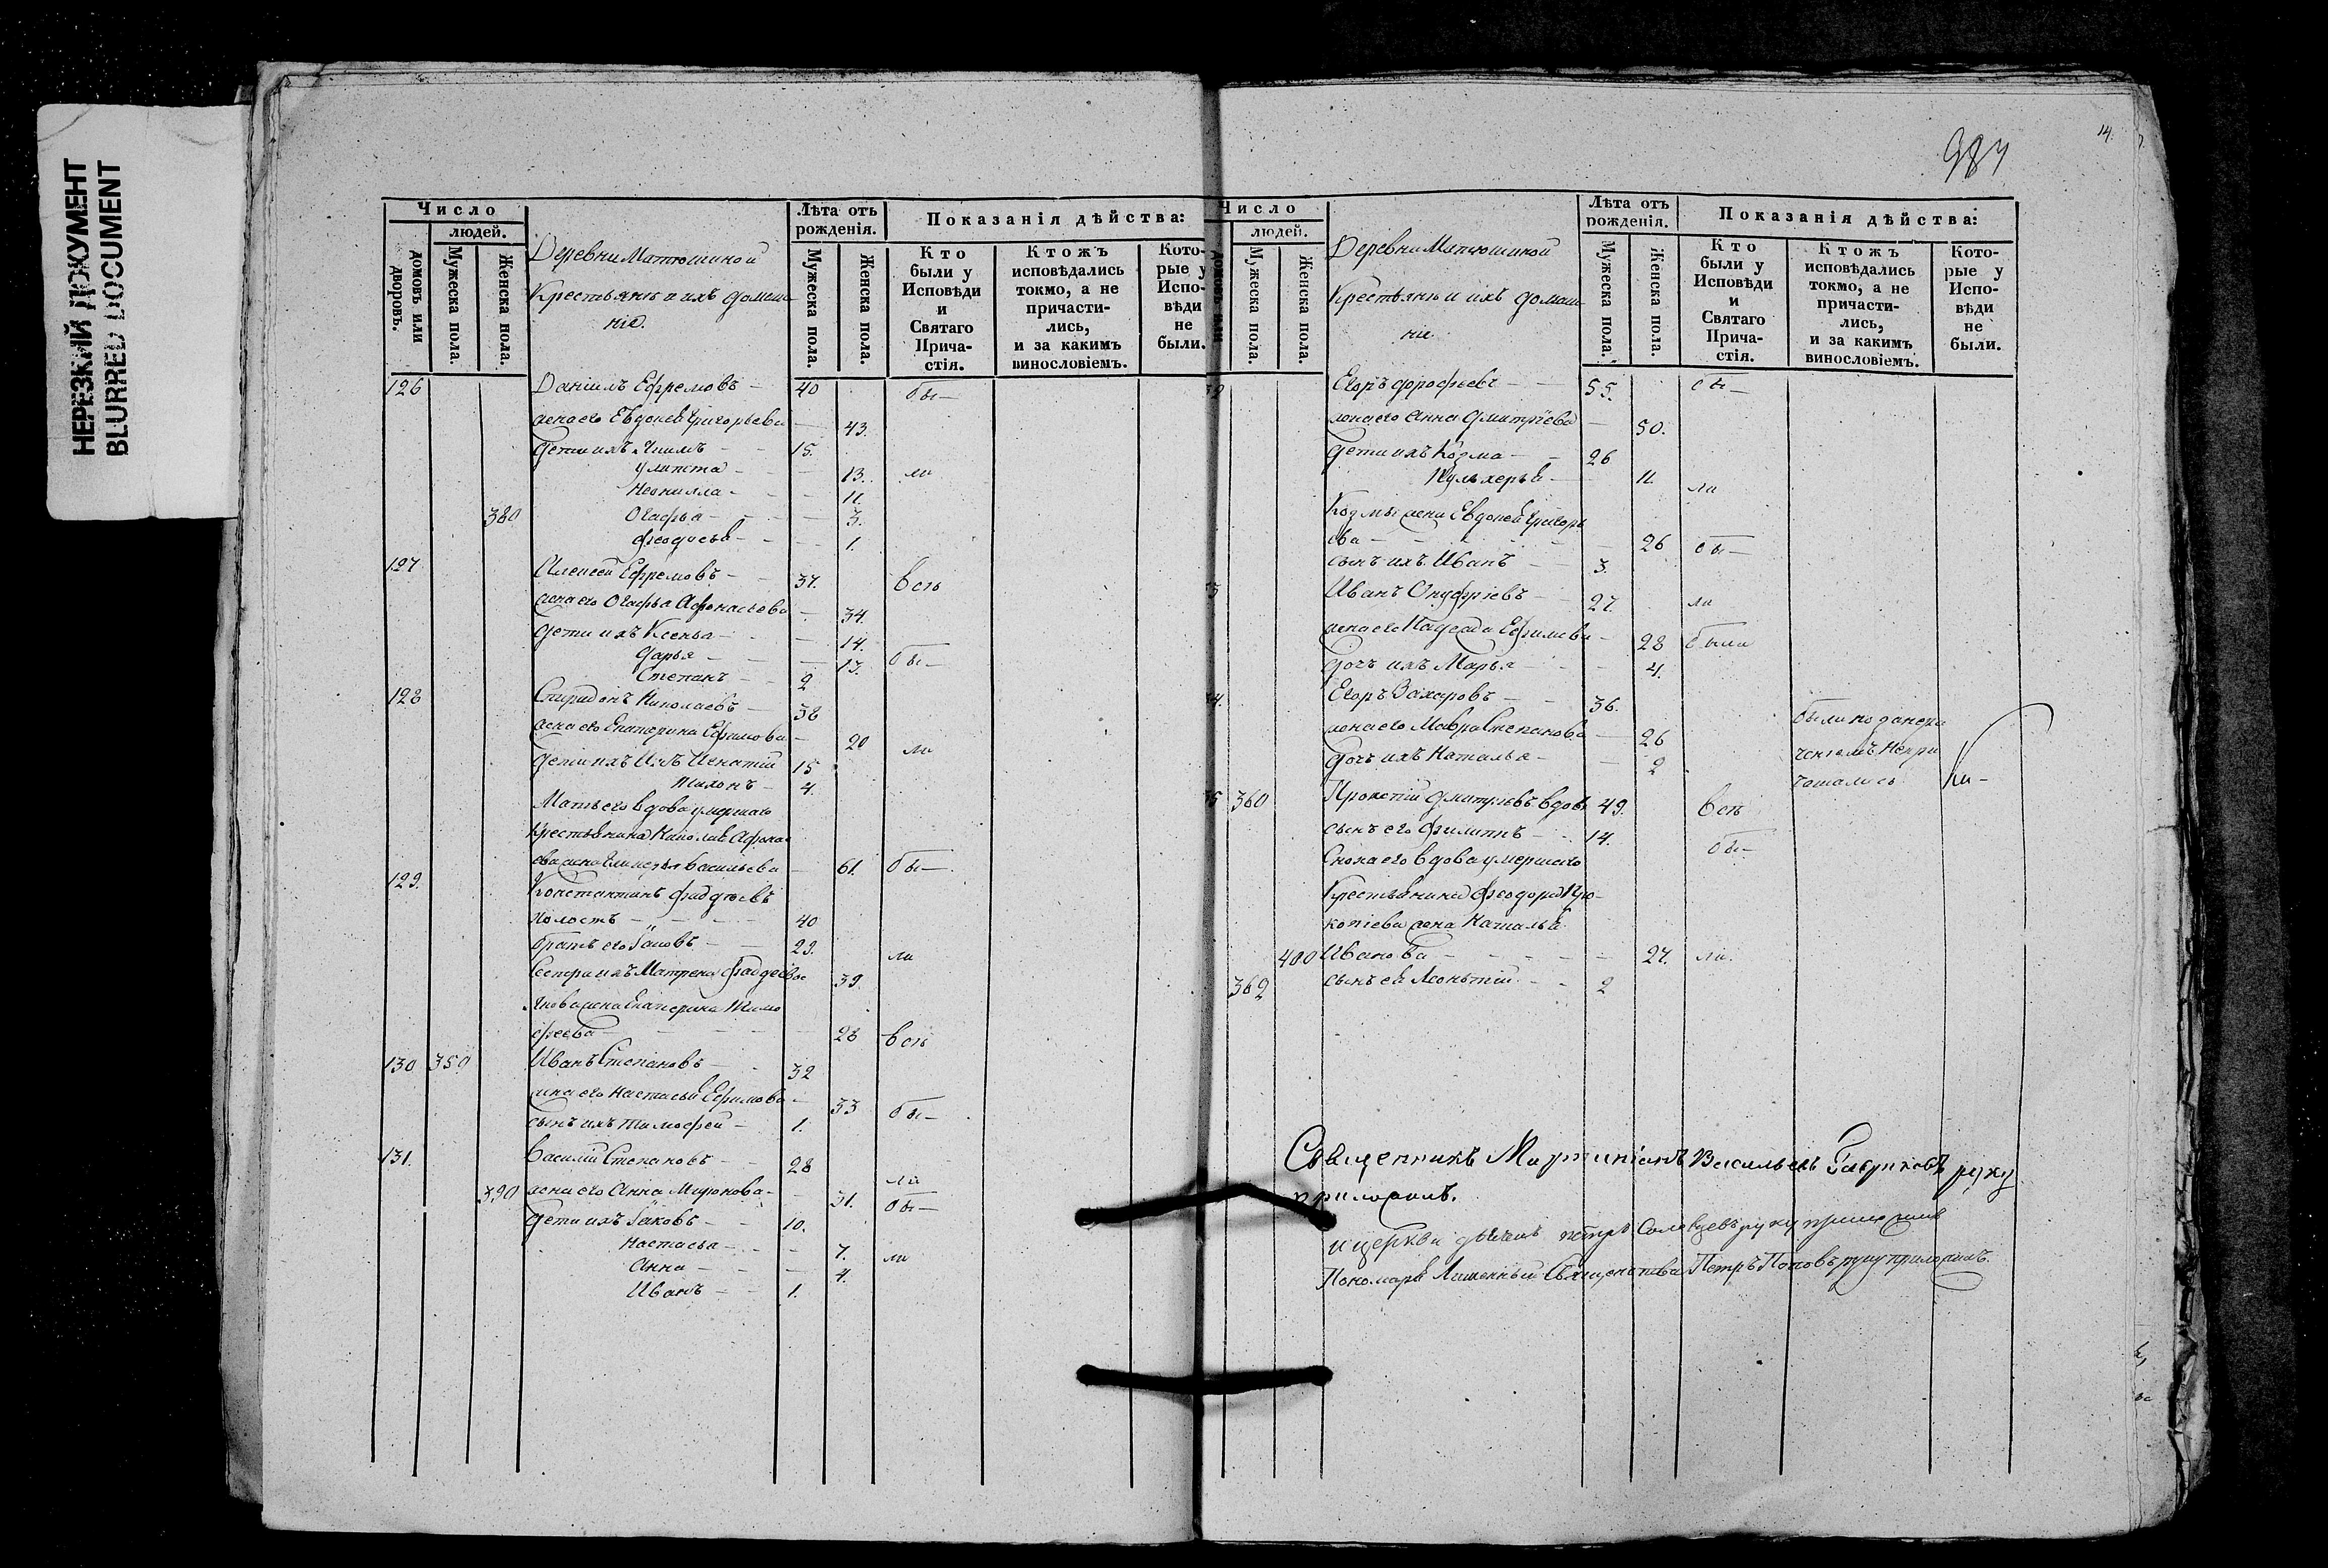 НЕРЕЗКИЙ ДОКУМЕНТ
BLURRED DOCUMENT
Число
людей.
домовъ или дворовъ.
Мужеска пола.
Женска пола.
Деревни Матюшиной
Крестьяне и ихъ домаш
ніе.
Лѣта отъ рожденія.
Мужеска пола.
Женска пола.
Показанія дѣйства:
Кто были у Исповѣди и Святаго Прича-стія.
Ктожъ исповѣдались токмо, а не причасти-лись, и за какимъ винословіемъ.
Кото-рые у Испо-вѣди не были.
126 Даніилъ Ефремовъ 40 бы
жена его Евдокея Григорьева 43.
Дети ихъ 15.
Улита 13. ли
Неонилла 11.
380 Огафья 3.
Феодосья 1.
127 Алексей Ефремовъ 37. всѣ
жена его Огафья Афонасьева 34.
Дети ихъ Ксенья 14.
Дарья 13. бы
Степанъ 2
128 Спиридонъ Николаевъ 38
жена его Екатерина Ефимова 20 ли
Дети ихъ Игнатий 15
Тихонъ 4.
Мать его вдова умершаго
Крестьянина Николая Афона
ева жена Васильева 61. бы
129. Константинъ Фаддеевъ
холостъ 40
братъ его Іаковъ 29. ли
Сестра ихъ Матрена Фаддеева 39.
Якова жена Екатерина Тимо
феева 28 всѣ
130 350 Иванъ Степановъ 32
жена его Настасья Ефимова 33 бы
сынъ ихъ Тимофей 1.
131. Василий Степановъ 28 ли
390 жена его Анна Миронова 31. бы
Дети ихъ Іаковъ 10.
Настасья 7. ли
Анна 4.
Иванъ 1.
14.
987
Число
людей.
Мужеска пола.
Женска пола.
Деревни Матюшиной
Крестьяне и ихъ домаш
ніе
Лѣта отъ рожденія.
Мужеска пола.
Женска пола.
Показанія дѣйства:
Кто были у Исповѣди и Святаго Прича-стія.
Ктожъ исповѣдались токмо, а не причасти-лись, и за какимъ винословіемъ.
Кото-рые у Испо-вѣди не были.
Егоръ Дорофеевъ 55. бы
жена его Анна Дмитріева 50.
Дети ихъ Козма 26
Пульхерья 11. ли
Козмы жена Евдокея Григорь
ева 26 бы
сынъ ихъ Иванъ 3.
Иванъ Онуфріевъ 27. ли
жена его Надежда Ефимова 28 были
дочь ихъ Марья 4.
Егоръ Захаровъ 36.
жена его Мавра Степанова 26
дочь ихъ Наталья 2
360 Прокопий Дмитріевъ вдовъ 49. всѣ
сынъ его Филиппъ 14. бы
Сноха его вдова умершаго
Крестьянина Феодора Про
копіева жена Наталья
400 Иванова 27. ли.
362 сынъ ея Леонтий 2
Священникъ Мартиніанъ Васильевъ Гавриловъ руку
приложилъ.
Петръ руку приложилъ
Пономарь Лишенный Священства Петръ Поповъ руку приложилъ.